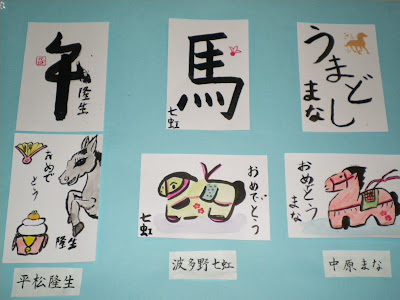 午
隆生
馬
七虹
うまどし
まな
おめで
とう
隆生
おめでとう
七虹
おめでとう
まな
平松隆生
波多野七虹
中原まな